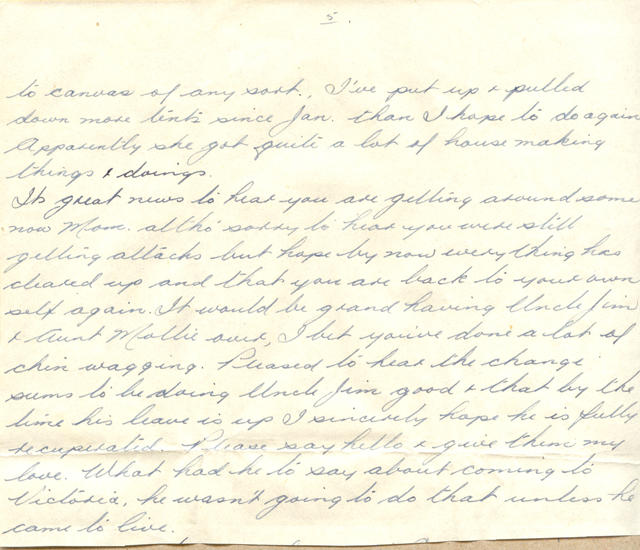 5.
to canvas of any sort., I've put up & pulled
down more tents since Jan. than I hope to do again
Apparently she got quite a lot of house making
things & doings.
Its great news to hear you are getting around some
now Mom. altho' sorry to hear you were still
getting attacks but hope by now everything has
cleared up and that you are back to your own
self again. It would be grand having Uncle Jim
& Aunt Mollie over, I bet you've done a lot of
chin wagging. Pleased to hear the change
seems to be doing Uncle Jim good & that by the
time his leave is up I sincerely hope he is fully
recuperated. Please say hello & give them my
love. What had he to say about coming to
Victoria, he wasn't going to do that unless he
came to live.